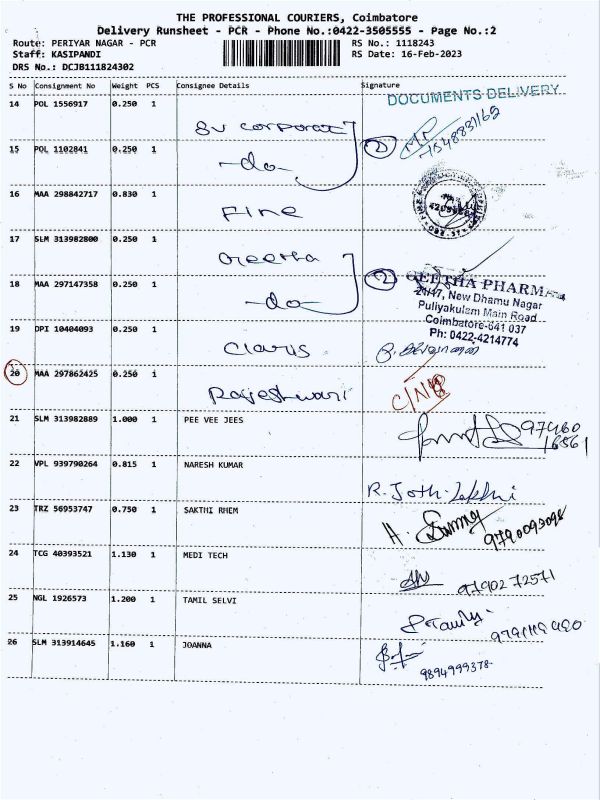 THE PROFESSIONAL COURIERS, Coimbatore
Delivery Runsheet - PCR - Phone No.:0422-3505555 - Page No.:2
Route: PERIYAR NAGAR - PCR
RS No.: 1118243
Staff: KASIPANDI
RS Date: 16-Feb-2023
DRS No.: DCJB111824302
S No Consignment No Weight PCS Consignee Details Signature
DOCUMENTS DELIVERY
14 POL 1556917 0.250 1 SU corporat
15 POL 1102841 0.250 1 -do- 2
16 MAA 298842717 0.830 1 Fine
17 SLM 313982800 0.250 1 Geetha
18 MAA 297147358 0.250 1 -do- 2
GEETHA PHARMA
24/47, New Dhamu Nagar
Puliyakulam Main Road
Coimbatore-641 037
Ph: 0422-4214774
19 DPI 10404093 0.250 1 Claris
20 MAA 297862425 0.250 1 Rajeshwari
21 SLM 313982889 1.000 1 PEE VEE JEES
22 VPL 939790264 0.815 1 NARESH KUMAR
23 TRZ 56953747 0.750 1 SAKTHI RHEM 9790093098
24 TCG 40393521 1.130 1 MEDI TECH 9790272571
25 NGL 1926573 1.200 1 TAMIL SELVI
26 SLM 313914645 1.160 1 JOANNA 9894999378